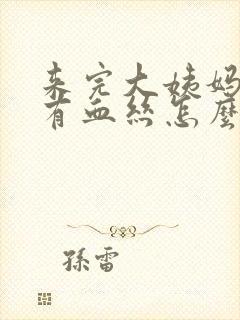 来完大姨妈
有血丝怎麼
孫雷